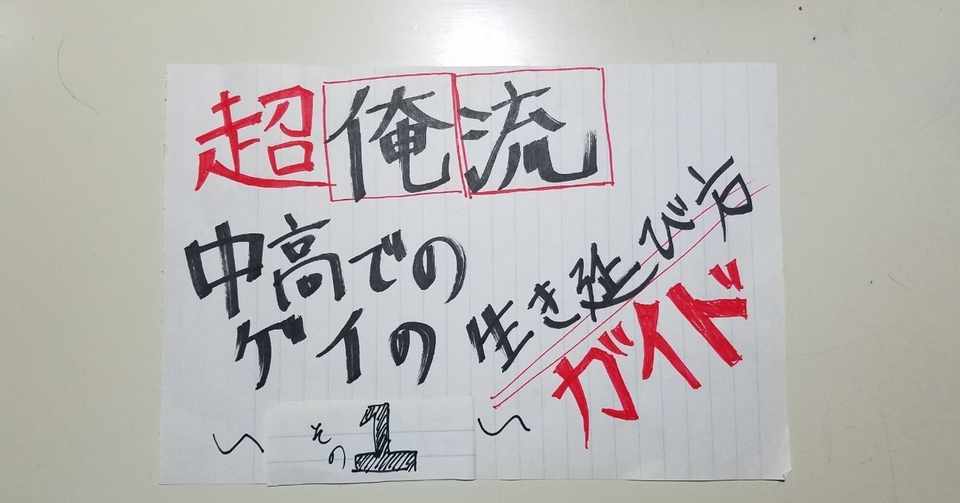 超俺流
中高での
ゲイの
生き延び方
ガイド
〜その1〜